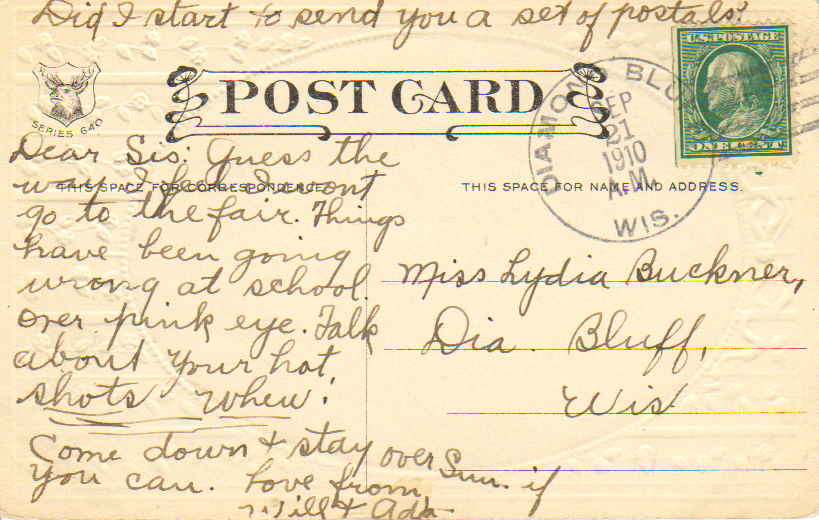 Did I start to send you a set of postals?
SERIES 640
POST CARD
DIAMOND BLU
SEP
21
1910
A.M.
WIS.
U.S. POSTAGE
ONE CENT
Dear Sis: Guess the
way I feel I wont
THIS SPACE FOR CORRESPONDENCE
go to the fair. Things
have been going
wrong at school
over pink eye. Talk
about your hot
shots whew!
Come down & stay over Sun. if
you can. Love from
Will & Ada
THIS SPACE FOR NAME AND ADDRESS.
Miss Lydia Buckner,
Dia. Bluff,
Wis